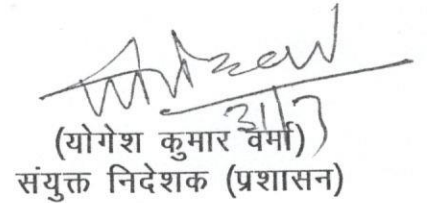 31/7
(योगेश कुमार वर्मा)
संयुक्त निदेशक (प्रशासन)